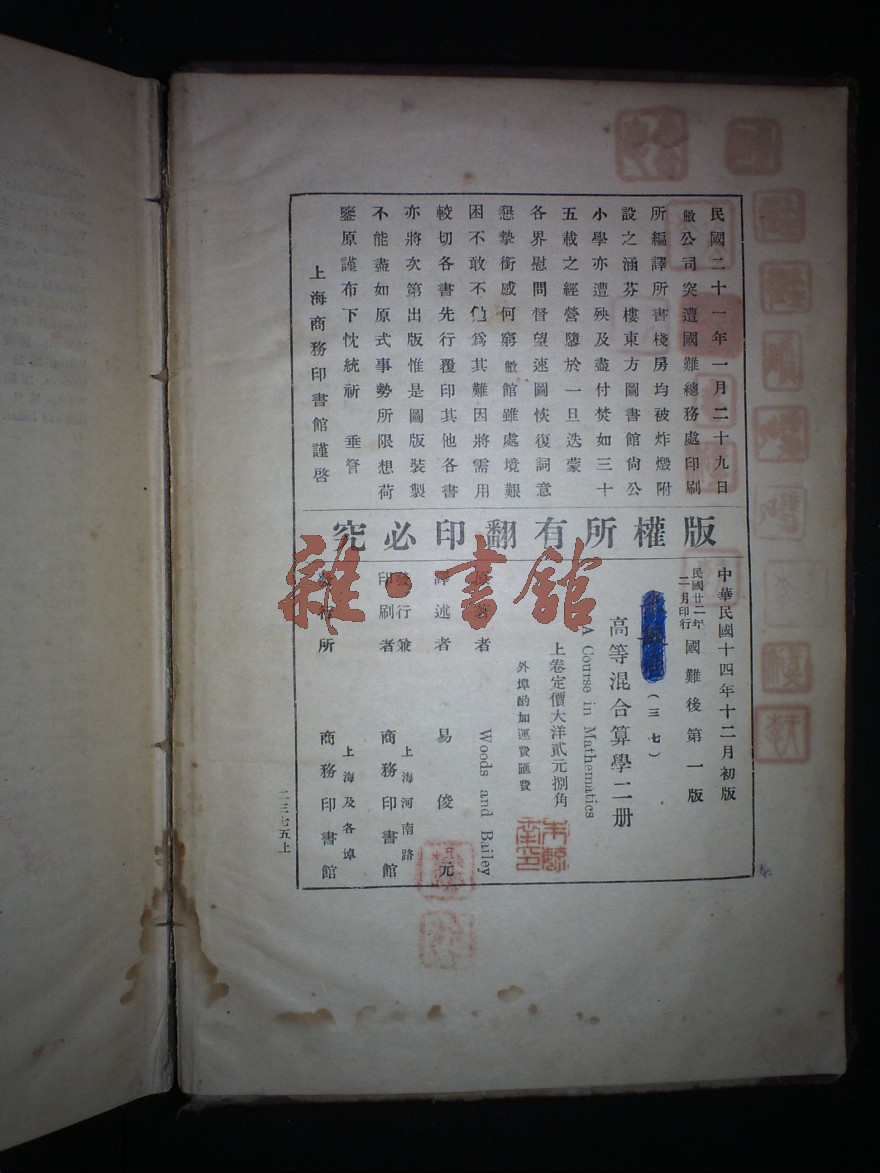 民國二十一年一月二十九日
敝公司突遭國難總務處印刷
所編譯所書棧房均被炸燬附
設之涵芬樓東方圖書館尚公
小學亦遭殃及盡付焚如三十
五載之經營隳於一旦迭蒙
各界慰問督望速圖恢復詞意
懇摯銜感何窮敝館雖處境艱
困不敢不勉爲其難因將需用
較切各書先行覆印其他各書
亦將次第出版惟是圖版裝製
不能盡如原式事勢所限想荷
鑒原謹布下忱統祈 垂詧
上海商務印書館謹啓
版權所有翻印必究
中華民國十四年十二月初版
民國廿二年二月印行 國難後第一版
(三七)
高等混合算學二册
A Course in Mathematics
上卷定價大洋貳元捌角
外埠酌加運費匯費
原著者 Woods and Bailey
譯述者 易俊元
發行兼印刷者 上海河南路 商務印書館
發行所 上海及各埠 商務印書館
二三七五上
雜·書館